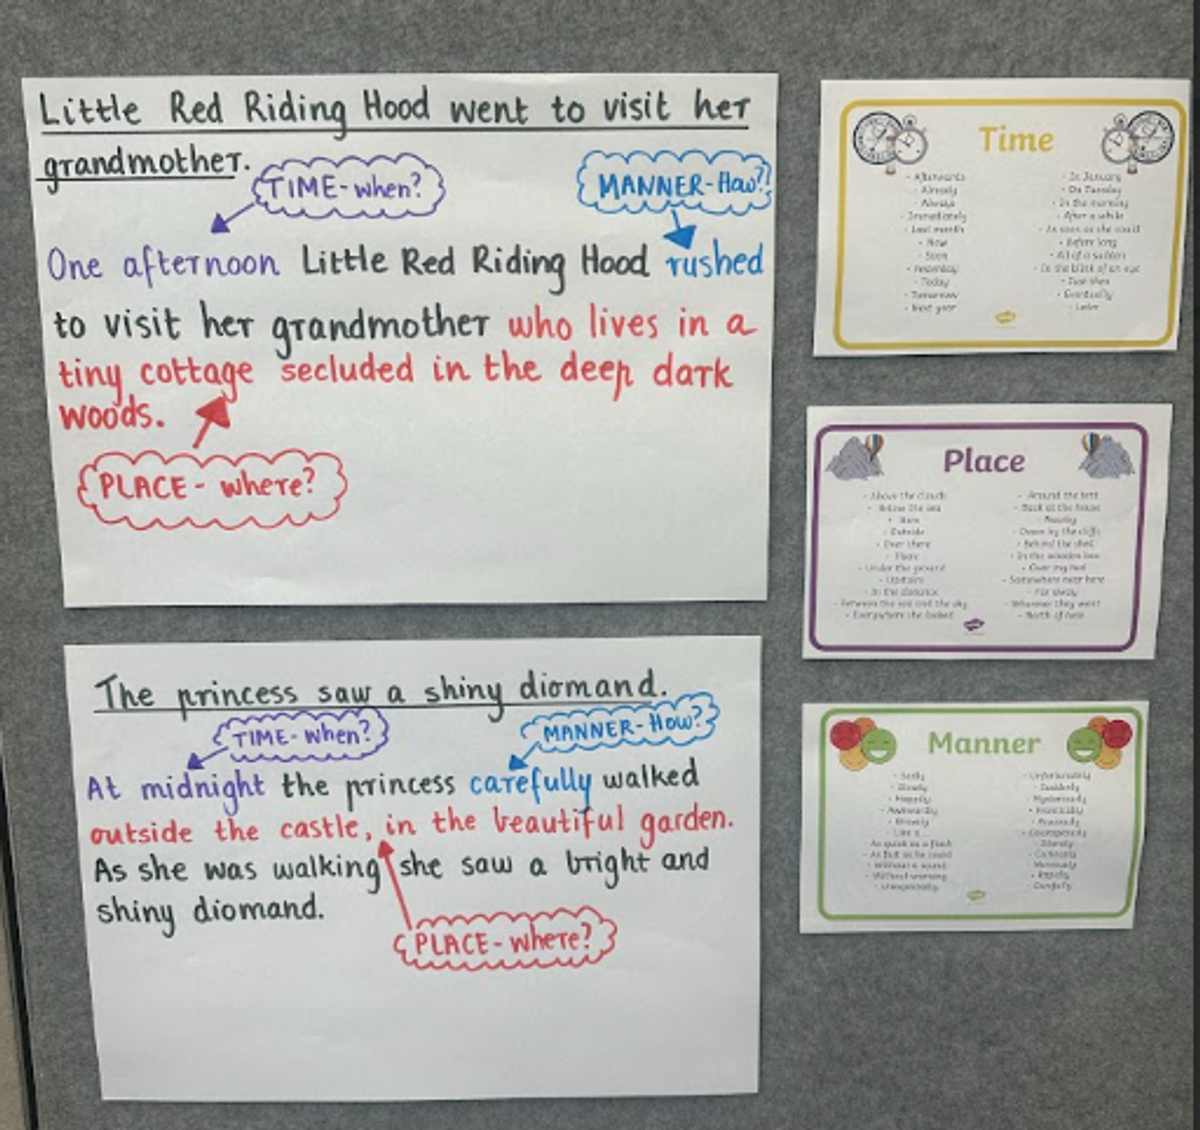 Little Red Riding Hood went to visit her
grandmother.
TIME - when?
MANNER - How?
One afternoon Little Red Riding Hood rushed
to visit her grandmother who lives in a
tiny cottage secluded in the deep dark
woods.
PLACE - where?
The princess saw a shiny diomand.
TIME - when?
MANNER - How?
At midnight the princess carefully walked
outside the castle, in the beautiful garden.
As she was walking she saw a bright and
shiny diomand.
PLACE - where?
Time
- Afterwards
- Already
- Always
- Immediately
- Last month
- Now
- Soon
- Yesterday
- Today
- Tomorrow
- Next year
- In January
- On Tuesday
- In the morning
- After a while
- As soon as she could
- Before long
- All of a sudden
- In the blink of an eye
- Just then
- Eventually
- Later
Place
- Above the clouds
- Below the sea
- Here
- Outside
- Over there
- There
- Under the ground
- Upstairs
- In the distance
- Between the sea and the sky
- Everywhere she looked
- Around the tent
- Back at the house
- Nearby
- Down by the cliffs
- Behind the shed
- In the wooden box
- Over my bed
- Somewhere near here
- Far away
- Wherever they went
- North of here
Manner
- Sadly
- Slowly
- Happily
- Awkwardly
- Bravely
- Like a
- As quick as a flash
- As fast as he could
- Without a sound
- Without warning
- Unexpectedly
- Unfortunately
- Suddenly
- Mysteriously
- Frantically
- Courageously
- Silently
- Rapidly
- Carefully